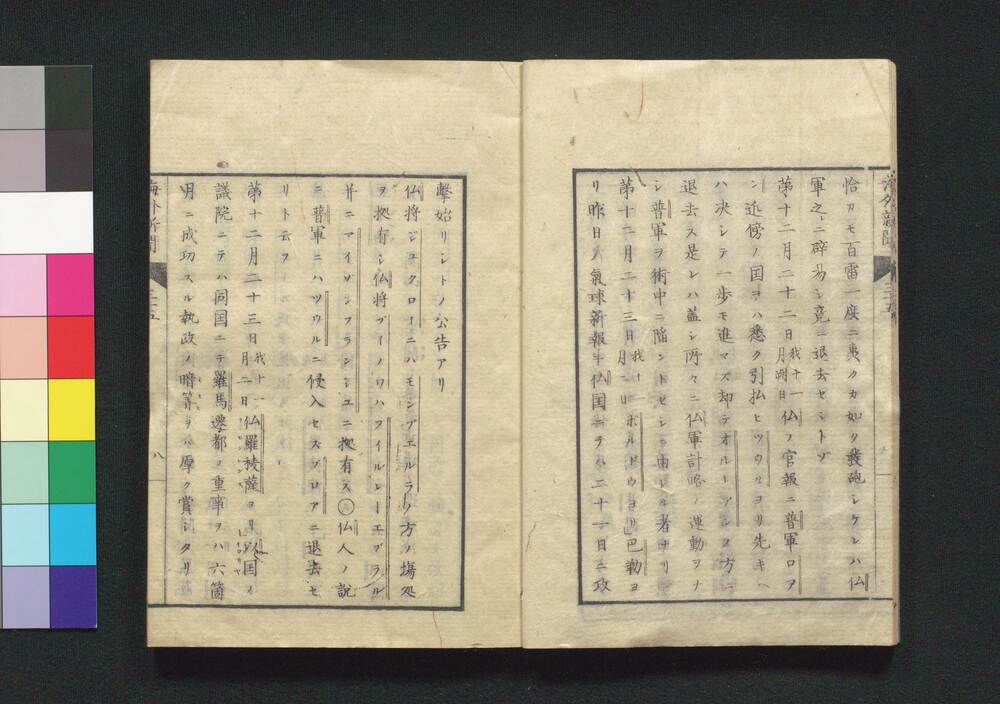 海外新聞
恰カモ百雷一度ニ轟クカ如ク発砲シケレハ仏
軍之ニ辟易シ竟ニ退去セシトゾ
第十二月二十二日我十一月朔日仏ノ官報ニ普軍ロア
ン近傍ノ国ヲハ悉ク引払ヒツウルヨリ先キヘ
ハ决シテ一歩モ進マズ却テオルレアンノ方ニ
退去ス是レハ蓋シ両々ニ仏軍計略ノ運動ヲナ
シ普軍ヲ術中ニ陥ントセシニ由レル者ナリ
第十二月二十三日我十一月二日ボルドウヨリ巴勒ヨ
リ昨日ノ気球新報ニ仏国ニテハ二十一日ニ攻
撃始リシトノ公告アリ
仏将ジユクローニハモンアエルラノ方ノ場処
ヲ拠有シ仏将ブイノワハフイルレーエブラル
并ニマイザンフランシユニ拠有ス○仏人ノ説
ニ普軍ニハツウルニ侵入セスブロアニ退去セ
リト云フ
第十二月二十三日我十一月二日仏羅稜薩ヨリ以国ノ
議院ニテハ同国ニテ羅馬遷都ノ重事ヲハ六箇
月ニ成功スル執政ノ暗算ヲハ厚ク賞シタリ
海外新聞
八